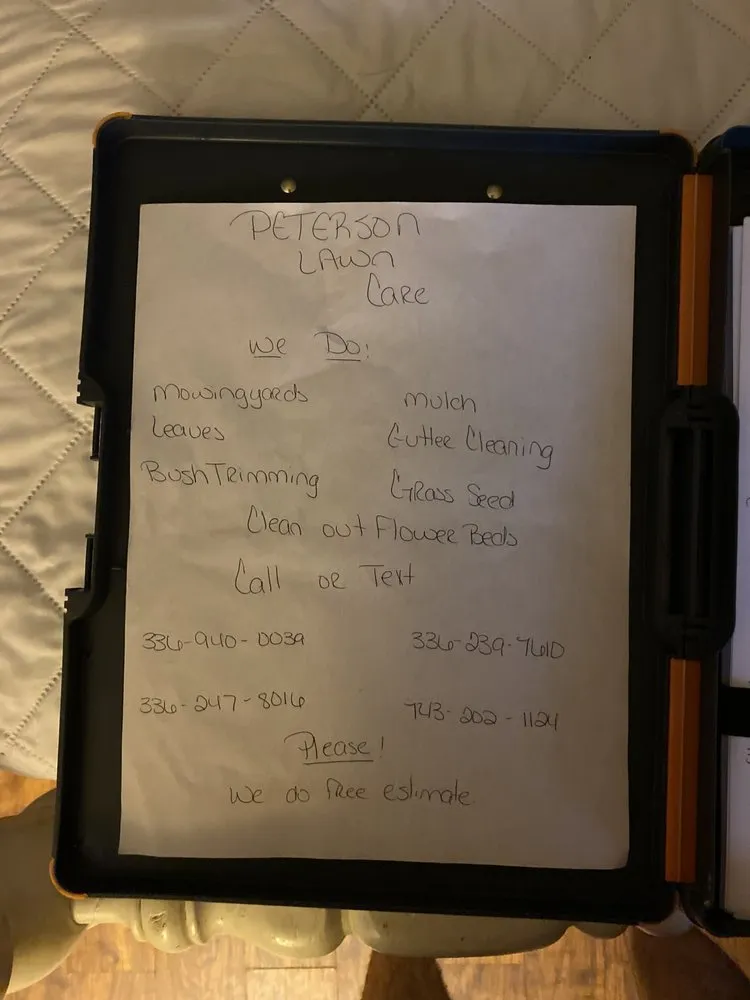 PETERSON
LAWN
Care
We Do!
Mowing yards
mulch
Leaves
Gutter Cleaning
Bush Trimming
Grass Seed
Clean out Flower Beds
Call or Text
336-940-0039
336-239-7610
336-247-8016
743-202-1124
Please!
We do free estimate